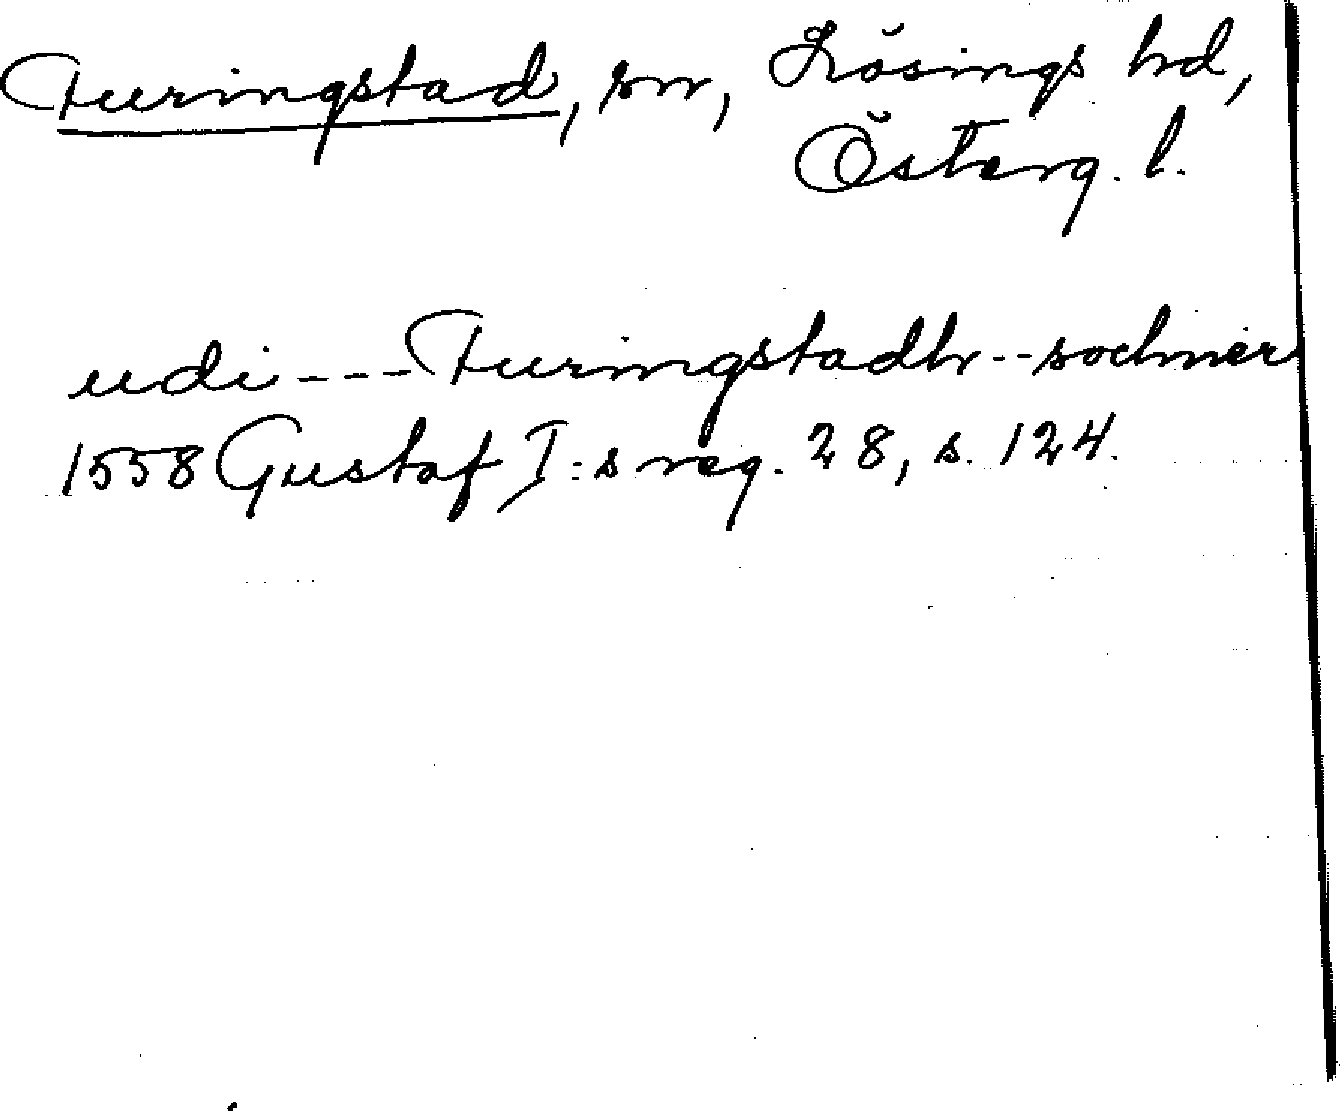 Furingstad, sn, Lösings hd,
Österg. l.
udi --- Furingstadh -- sochner
1558 Gustaf I:s reg. 28, s. 124.